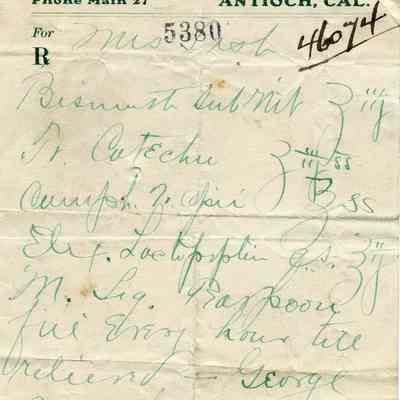 Phone Main 27 ANTIOCH, CAL.
For Mrs 5380 46074
R
Bismuth subnit ʒ iij
Tr. Catechu ʒ iii ss
Camph. Opii ʒ ss
Elix. Lactopeptin q.s. ʒ iij
M. Sig. Teaspoon
ful Every hour till
relieved — George